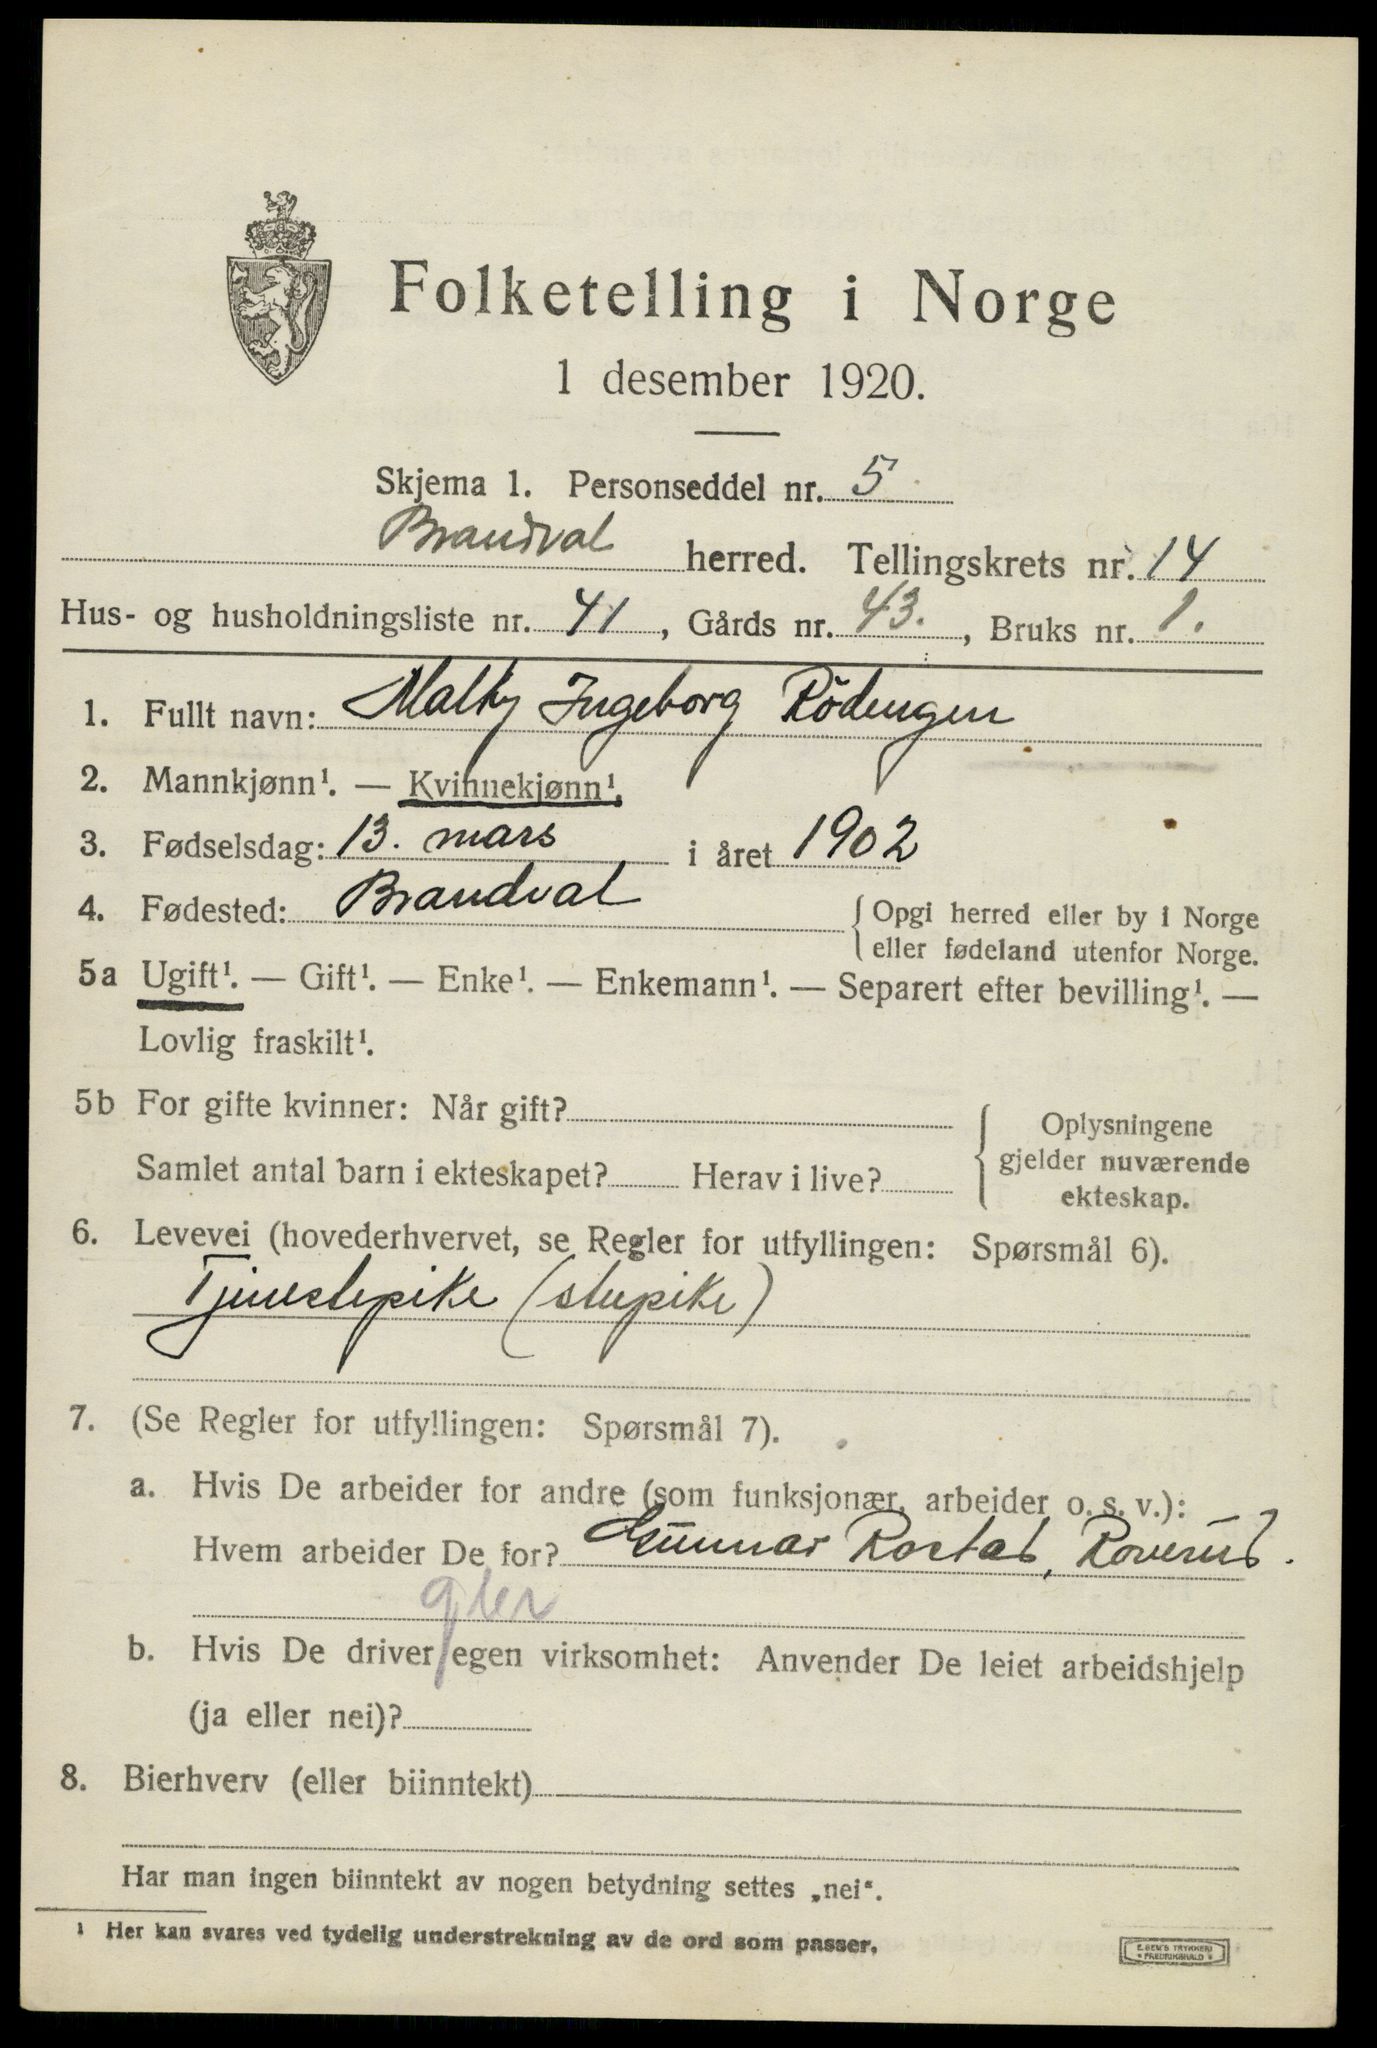 Folketelling i Norge
1 desember 1920.
Skjema 1. Personseddel nr. 5
Brandval herred. Tellingskrets nr. 14
Hus- og husholdningsliste nr. 41, Gårds nr. 43., Bruks nr. 1.
1. Fullt navn: Malky Ingeborg Rödengen
2. Mannkjønn¹. — Kvinnekjønn¹.
3. Fødselsdag: 13. mars i året 1902
4. Fødested: Brandval { Opgi herred eller by i Norge
eller fødeland utenfor Norge.
5a Ugift¹. — Gift¹. — Enke¹. — Enkemann¹. — Separert efter bevilling¹. —
Lovlig fraskilt¹.
5b For gifte kvinner: Når gift? { Oplysningene
gjelder nuværende
ekteskap.
Samlet antal barn i ekteskapet? Herav i live?
6. Levevei (hovederhvervet, se Regler for utfyllingen: Spørsmål 6).
Tjenestepike (stupike)
7. (Se Regler for utfyllingen: Spørsmål 7).
a. Hvis De arbeider for andre (som funksjonær, arbeider o. s. v.):
Hvem arbeider De for? Gunnar Rostad, Roverud.
b. Hvis De driver egen virksomhet: Anvender De leiet arbeidshjelp
(ja eller nei)?
8. Bierhverv (eller biinntekt)
Har man ingen biinntekt av nogen betydning settes „nei“.
¹ Her kan svares ved tydelig understrekning av de ord som passer.
E. SEM'S TRYKKERI
FREDRIKSHALD